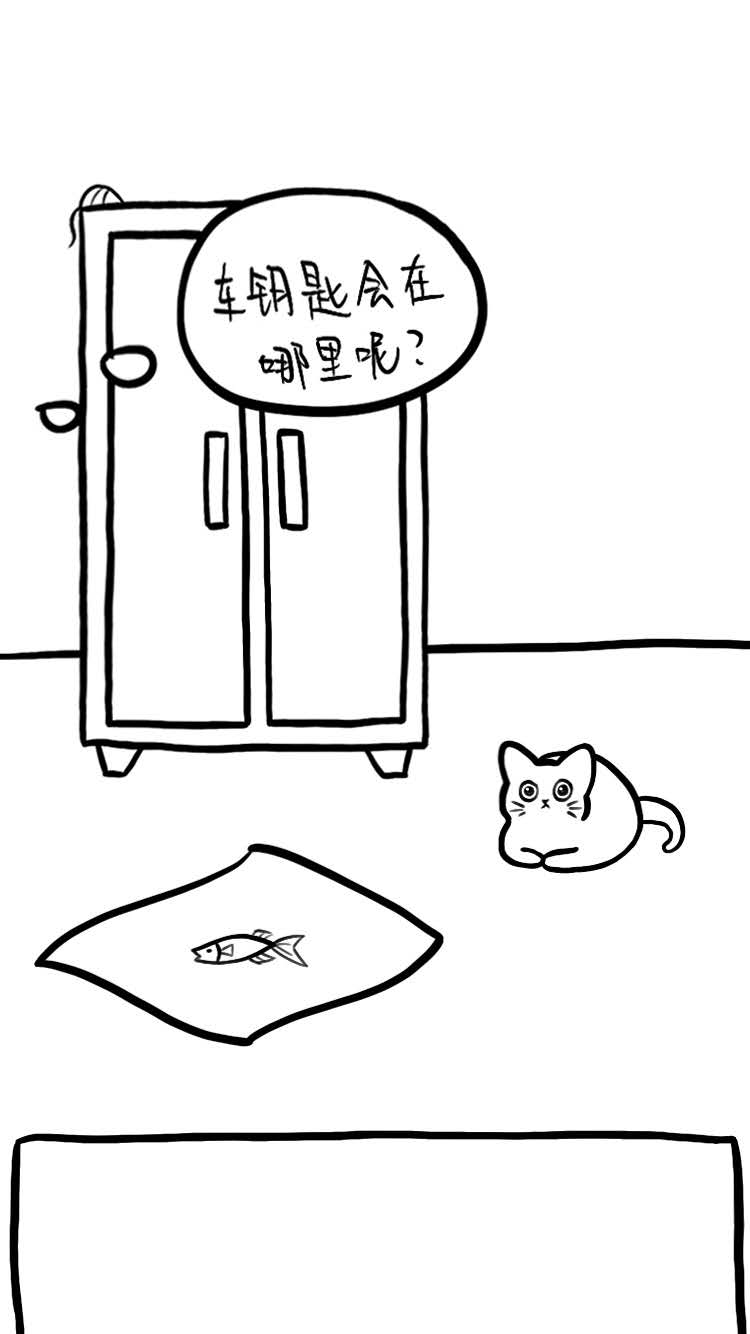 车钥匙会在
哪里呢?